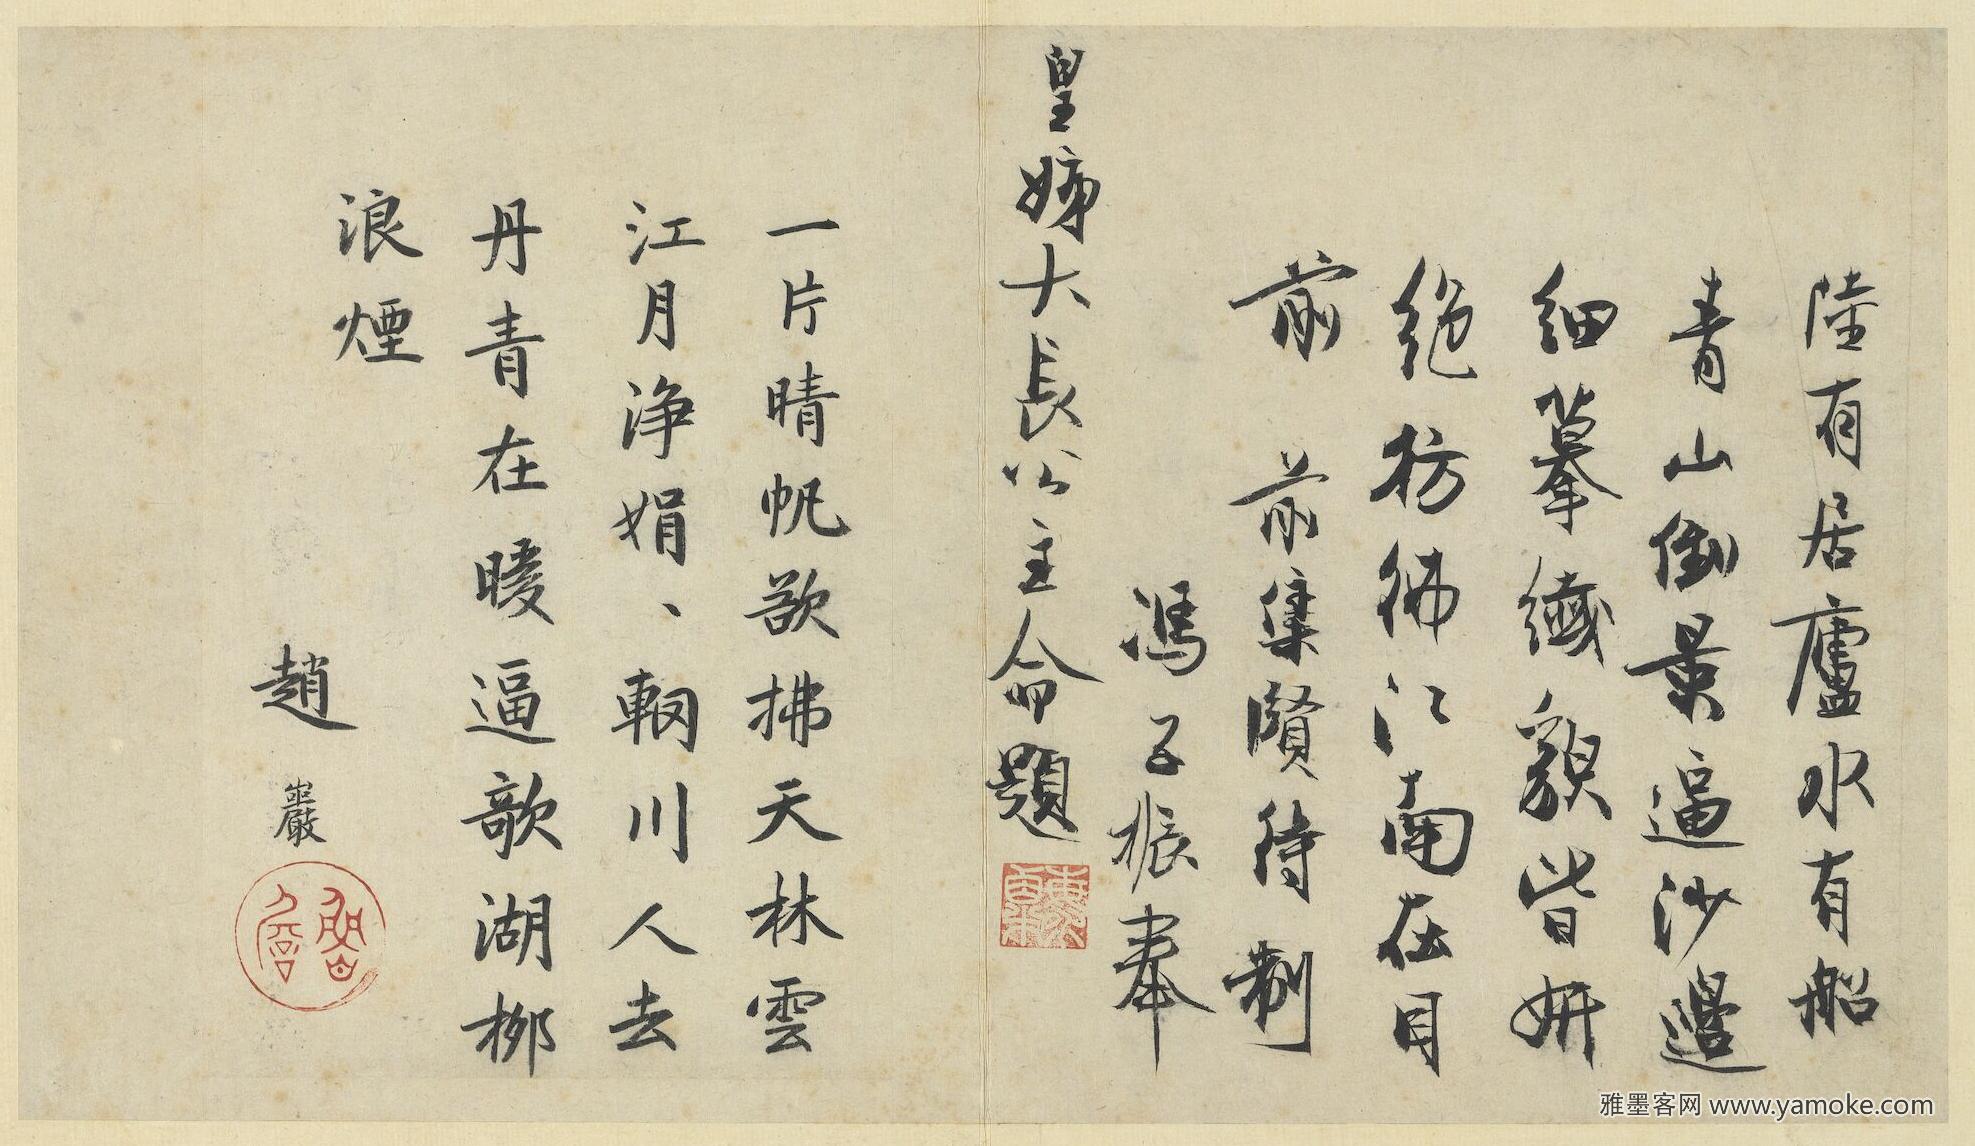 陸有居廬水有船
青山倒景逼沙邊
細摹纎貌皆妍
絶彷彿江南在目
前 前集賢待制
馮子振奉
皇姊大長公主命題
一片晴帆欲拂天林雲
江月浄娟、輞川人去
丹青在暖逼歌湖柳
浪煙
趙巖
雅墨客网 www.yamoke.com